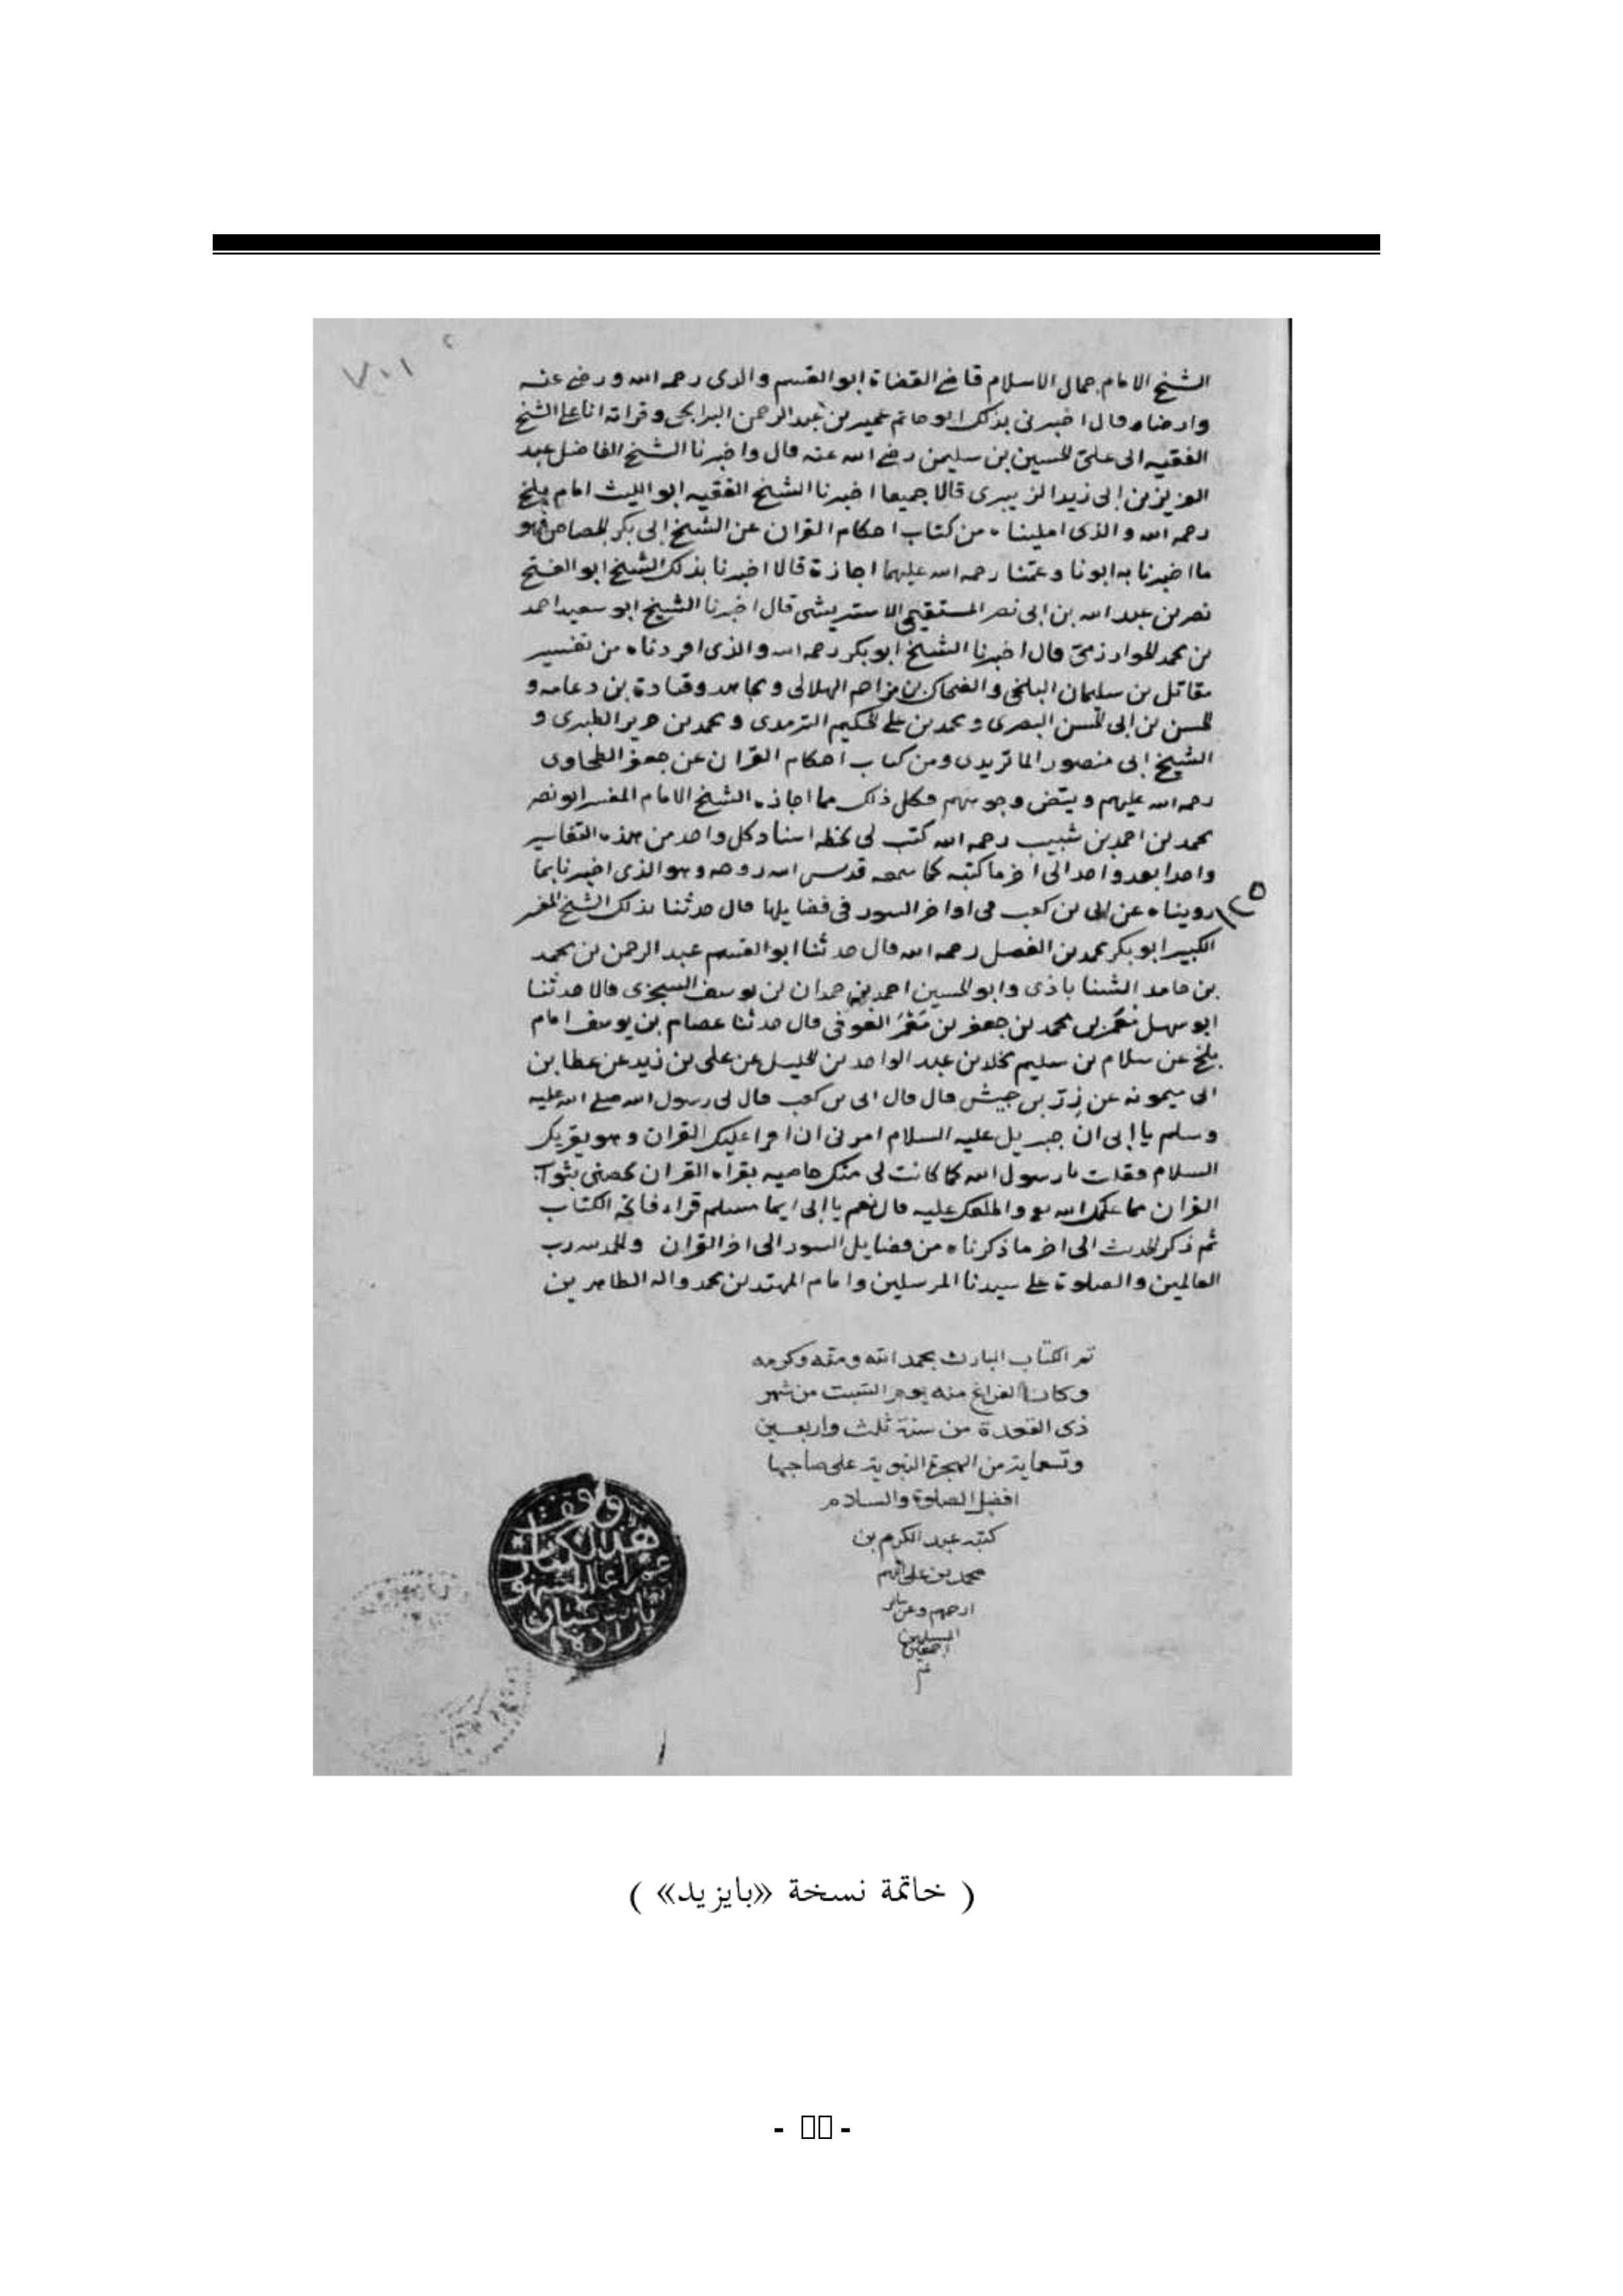 ٧٠١
الشيخ الامام جمال الاسلام قاضي القضاة ابو القسم والدى رحمه الله ورضى عنه
وارضاه وقال اخبرنى بذلك ابو حاتم عمير بن عبد الرحمن وقراته انا على الشيخ
الفقيه ابى على الحسين بن سليمن رضى الله عنه قال واخبرنا الشيخ الفاضل عبد
العزيز بن ابى زيد قالا جميعا اخبرنا الشيخ الفقيه ابو الليث امام بلخ
رحمه الله والذى امليناه من كتاب احكام القران عن الشيخ ابى بكر الجصاص فهو
ما اخبرنا به ابونا وعمنا رحمه الله عليهما اجازة قالا اخبرنا بذلك الشيخ ابو الفتح
نصر بن عبد الله بن ابى نصر قال اخبرنا الشيخ ابو سعيد احمد
بن محمد الخوارزمى قال اخبرنا الشيخ ابو بكر رحمه الله والذى اوردناه من تفسير
مقاتل بن سليمان البلخى والضحاك بن مزاحم الهلالى ومجاهد وقتادة بن دعامه و
الحسن بن ابى الحسن البصرى ومحمد بن على الحكيم الترمدى ومحمد بن جرير الطبرى و
الشيخ ابى منصور الماتريدى ومن كتاب احكام القران عن جعفر الطحاوى
رحمه الله عليهم وبيض وجوههم فكل ذلك مما اجازه الشيخ الامام المفسر ابو نصر
محمد بن احمد بن شبيب رحمه الله كتب لى بخطه اسناد كل واحد من هذه التفاسير
واحدا بعد واحد الى اخر ما كتبه كما سمعه قدس الله روحه وهو الذى اخبرنا بما
رويناه عن ابى بن كعب فى اواخر السور فى فضايلها قال حدثنا بذلك الشيخ المفسر
الكبير ابو بكر محمد بن الفضل رحمه الله قال حدثنا ابو القسم عبد الرحمن بن محمد
بن حامد وابو الحسين احمد بن حمدان بن يوسف السجزى قالا حدثنا
ابو سهل معمر بن محمد بن جعفر بن معمر العوفى قال حدثنا عصام بن يوسف امام
بلخ عن سلام بن سليم بن عبد الواحد بن الخليل عن على بن زيد عن عطا بن
ابى ميمونه عن زر بن حبيش قال قال ابى بن كعب قال لى رسول الله صلى الله عليه
وسلم يا ابى ان جبريل عليه السلام امرنى ان اقرا عليك القران وهو يقريك
السلام فقلت يا رسول الله كما كانت لى منك خاصيه بقراه القران فخصنى بثواب
القران مما علمك الله به واطلعك عليه قال نعم يا ابى ايما مسلم قراء فاتحة الكتاب
ثم ذكر الحديث الى اخر ما ذكرناه من فضايل السور الى اخر القران والحمد لله رب
العالمين والصلوة على سيدنا المرسلين وامام المهتدين محمد واله الطاهرين
تم الكتاب المبارك بحمد الله ومنه وكرمه
وكان الفراغ منه يوم السبت من شهر
ذى القعدة من سنة ثلث واربعين
وتسعماية من الهجرة النبوية على صاحبها
افضل الصلوة والسلام
كتبه عبد الكريم بن
محمد بن على اللهم
ارحمهم وعن ساير
المسلمين
اجمعين
( خاتمة نسخة «بايزيد» )